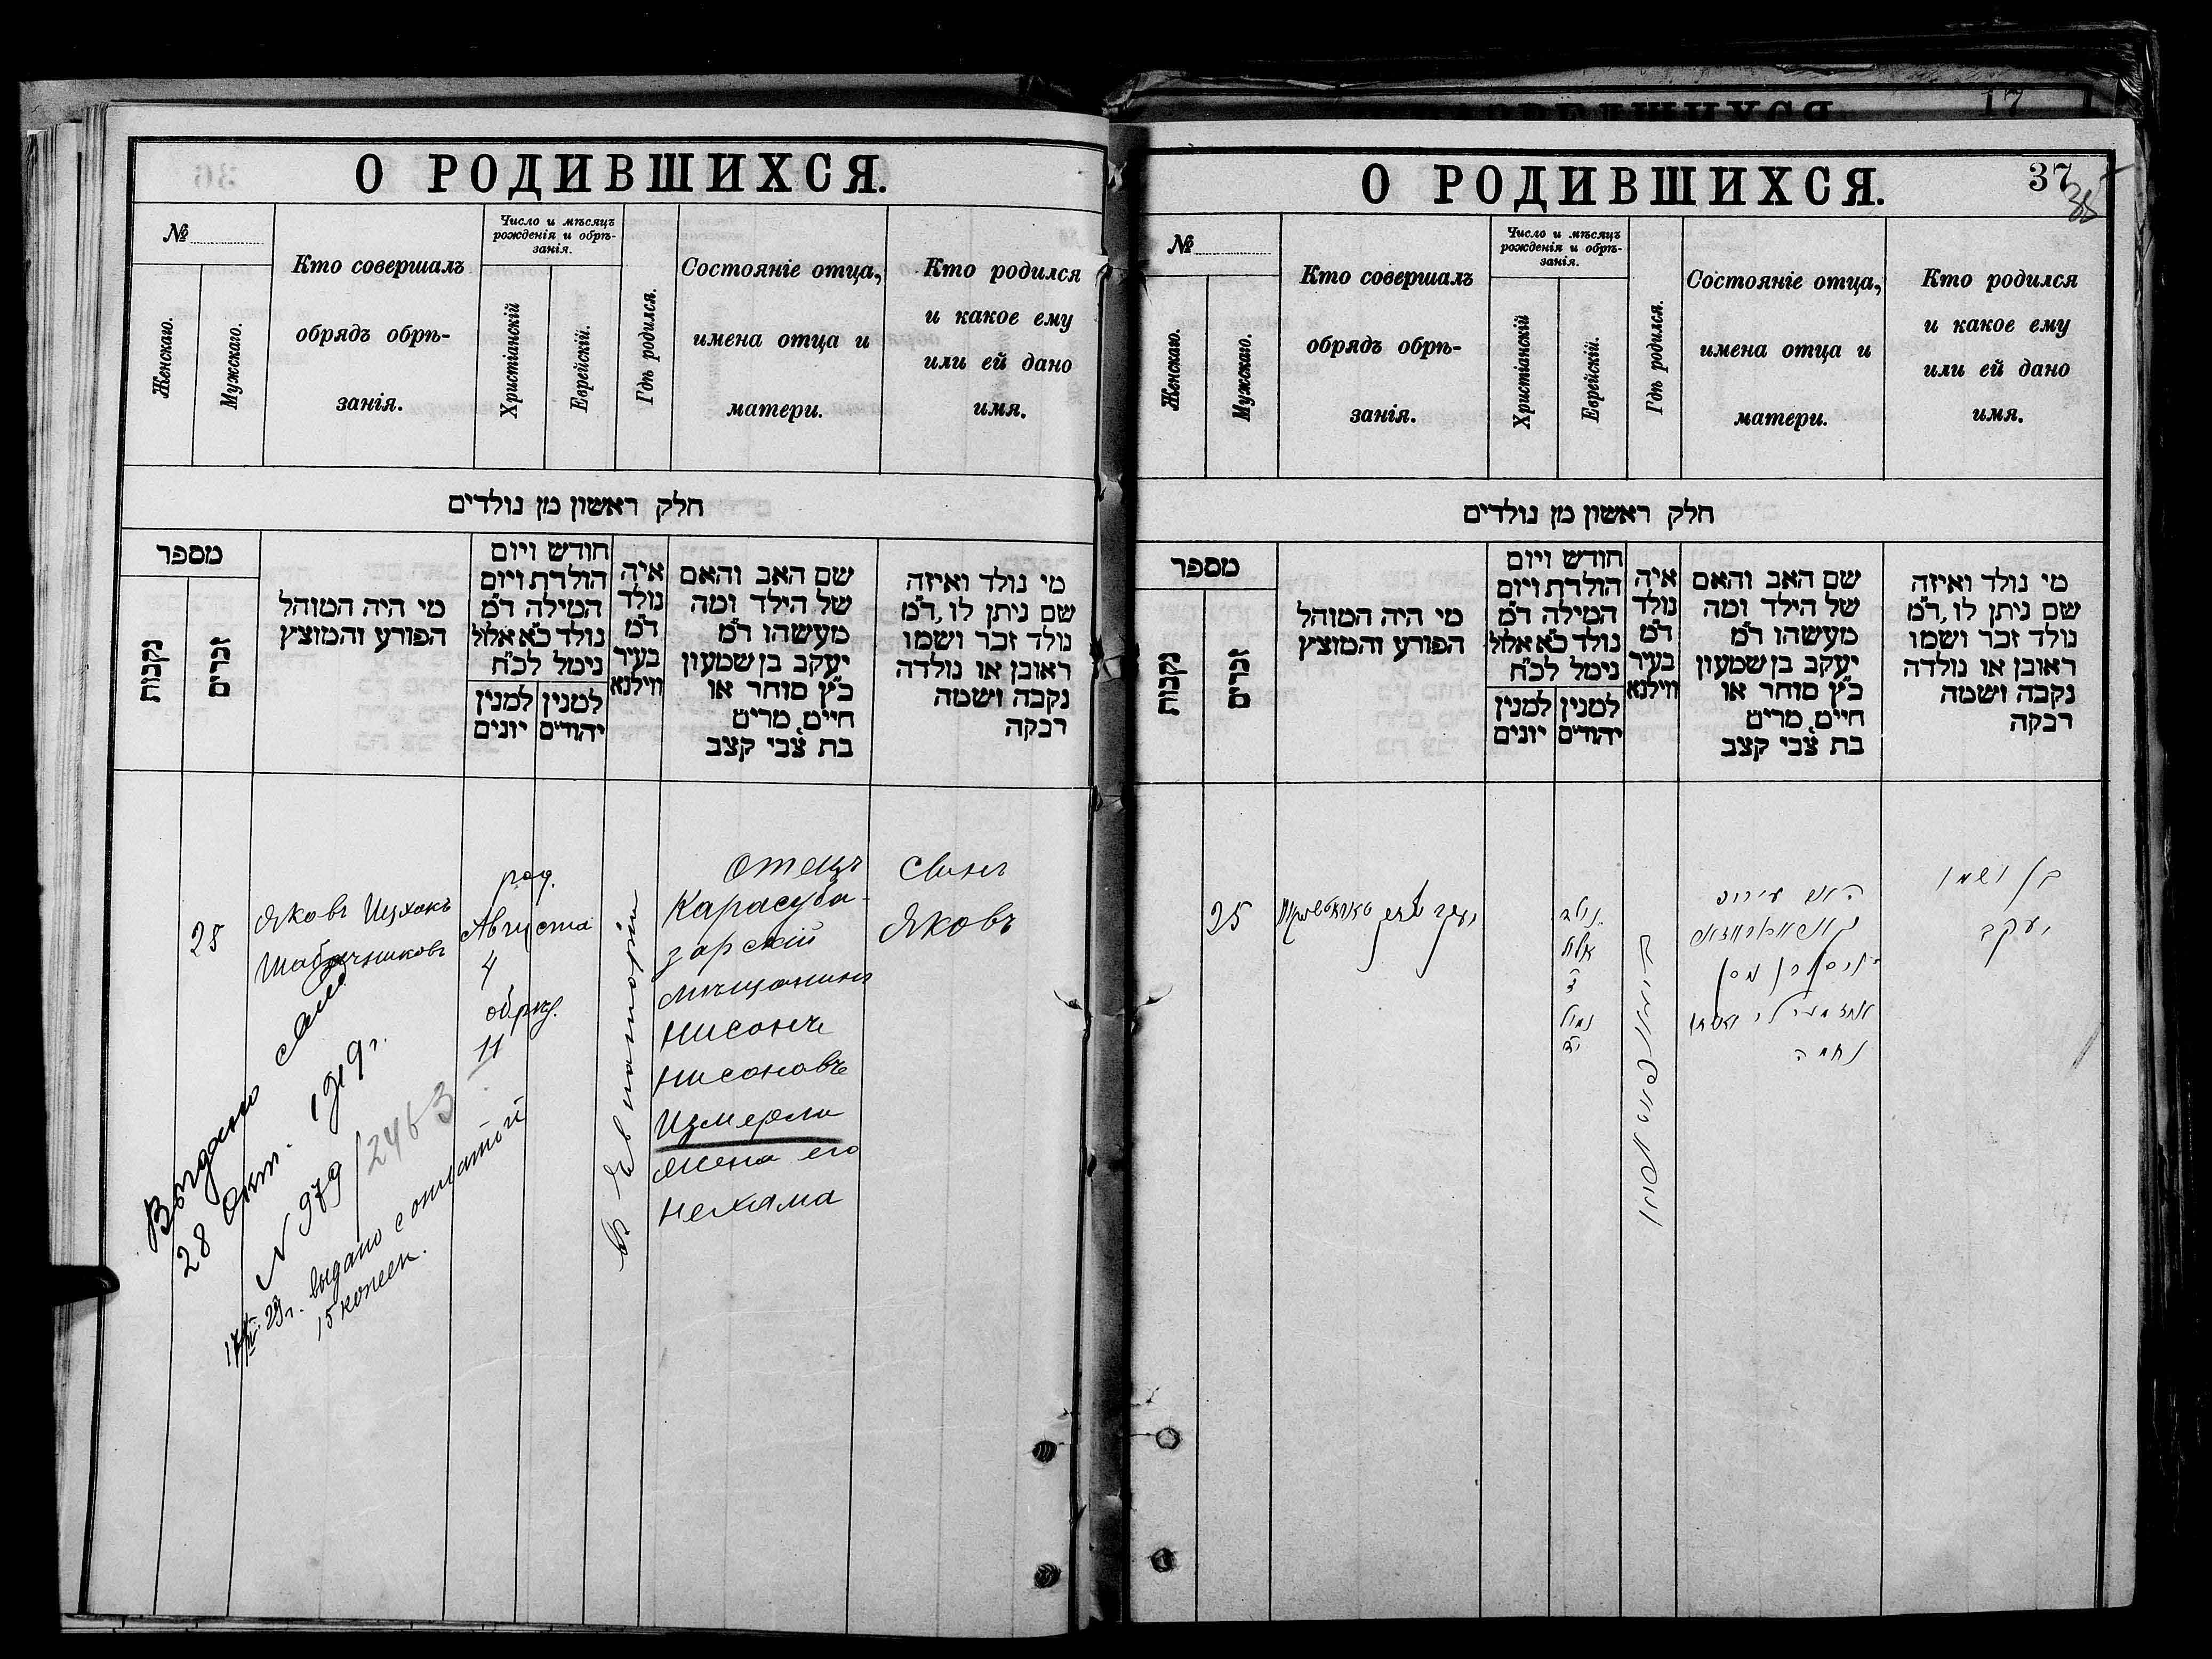 О РОДИВШИХСЯ.
№
Женскаго.
Мужскаго.
Кто совершалъ
обрядъ обрѣ-
занія.
Число и мѣсяцъ
рожденія и обрѣ-
занія.
Христіанскій
Еврейскій.
Гдѣ родился.
Состояніе отца,
имена отца и
матери.
Кто родился
и какое ему
или ей дано
имя.
חלק ראשון מן נולדים
מספר
נקבות
זכרים
מי היה המוהל
הפורע והמוצץ
חודש ויום
הולדת ויום
המילה ד״מ
נולד כ״א אלול
נימל לכ״ח
למנין יונים
למנין יהודים
איה
נולד
ד״מ
בעיר
ווילנא
שם האב והאם
של הילד ומה
מעשהו ד״מ
יעקב בן שמעון
כ״ץ סוחר או
חייט, מרים
בת צבי קצב
מי נולד ואיזה
שם ניתן לו, ד״מ
נולד זכר ושמו
ראובן או נולדה
נקבה ושמה
רבקה
25
Яковъ Ицхокъ
род.
Августа
4
обрѣз.
11
В Евпаторіи
Отецъ
Карасуба-
зарскій
мѣщанинъ
Нисонъ
Нисоновъ
Измерли
жена его
Нехама
Сынъ
Яковъ
Выдано
28 Окт. 1919 г.
N 979/2463
29 г. выдано с оплатой
15 копеек.
О РОДИВШИХСЯ.
37
№
Женскаго.
Мужскаго.
Кто совершалъ
обрядъ обрѣ-
занія.
Число и мѣсяцъ
рожденія и обрѣ-
занія.
Христіанскій
Еврейскій.
Гдѣ родился.
Состояніе отца,
имена отца и
матери.
Кто родился
и какое ему
или ей дано
имя.
חלק ראשון מן נולדים
מספר
נקבות
זכרים
מי היה המוהל
הפורע והמוצץ
חודש ויום
הולדת ויום
המילה ד״מ
נולד כ״א אלול
נימל לכ״ח
למנין יונים
למנין יהודים
איה
נולד
ד״מ
בעיר
ווילנא
שם האב והאם
של הילד ומה
מעשהו ד״מ
יעקב בן שמעון
כ״ץ סוחר או
חייט, מרים
בת צבי קצב
מי נולד ואיזה
שם ניתן לו, ד״מ
נולד זכר ושמו
ראובן או נולדה
נקבה ושמה
רבקה
25
יעקב יצחק
נולד
אלול
נמול
נחמה
בן ושמו
יעקב